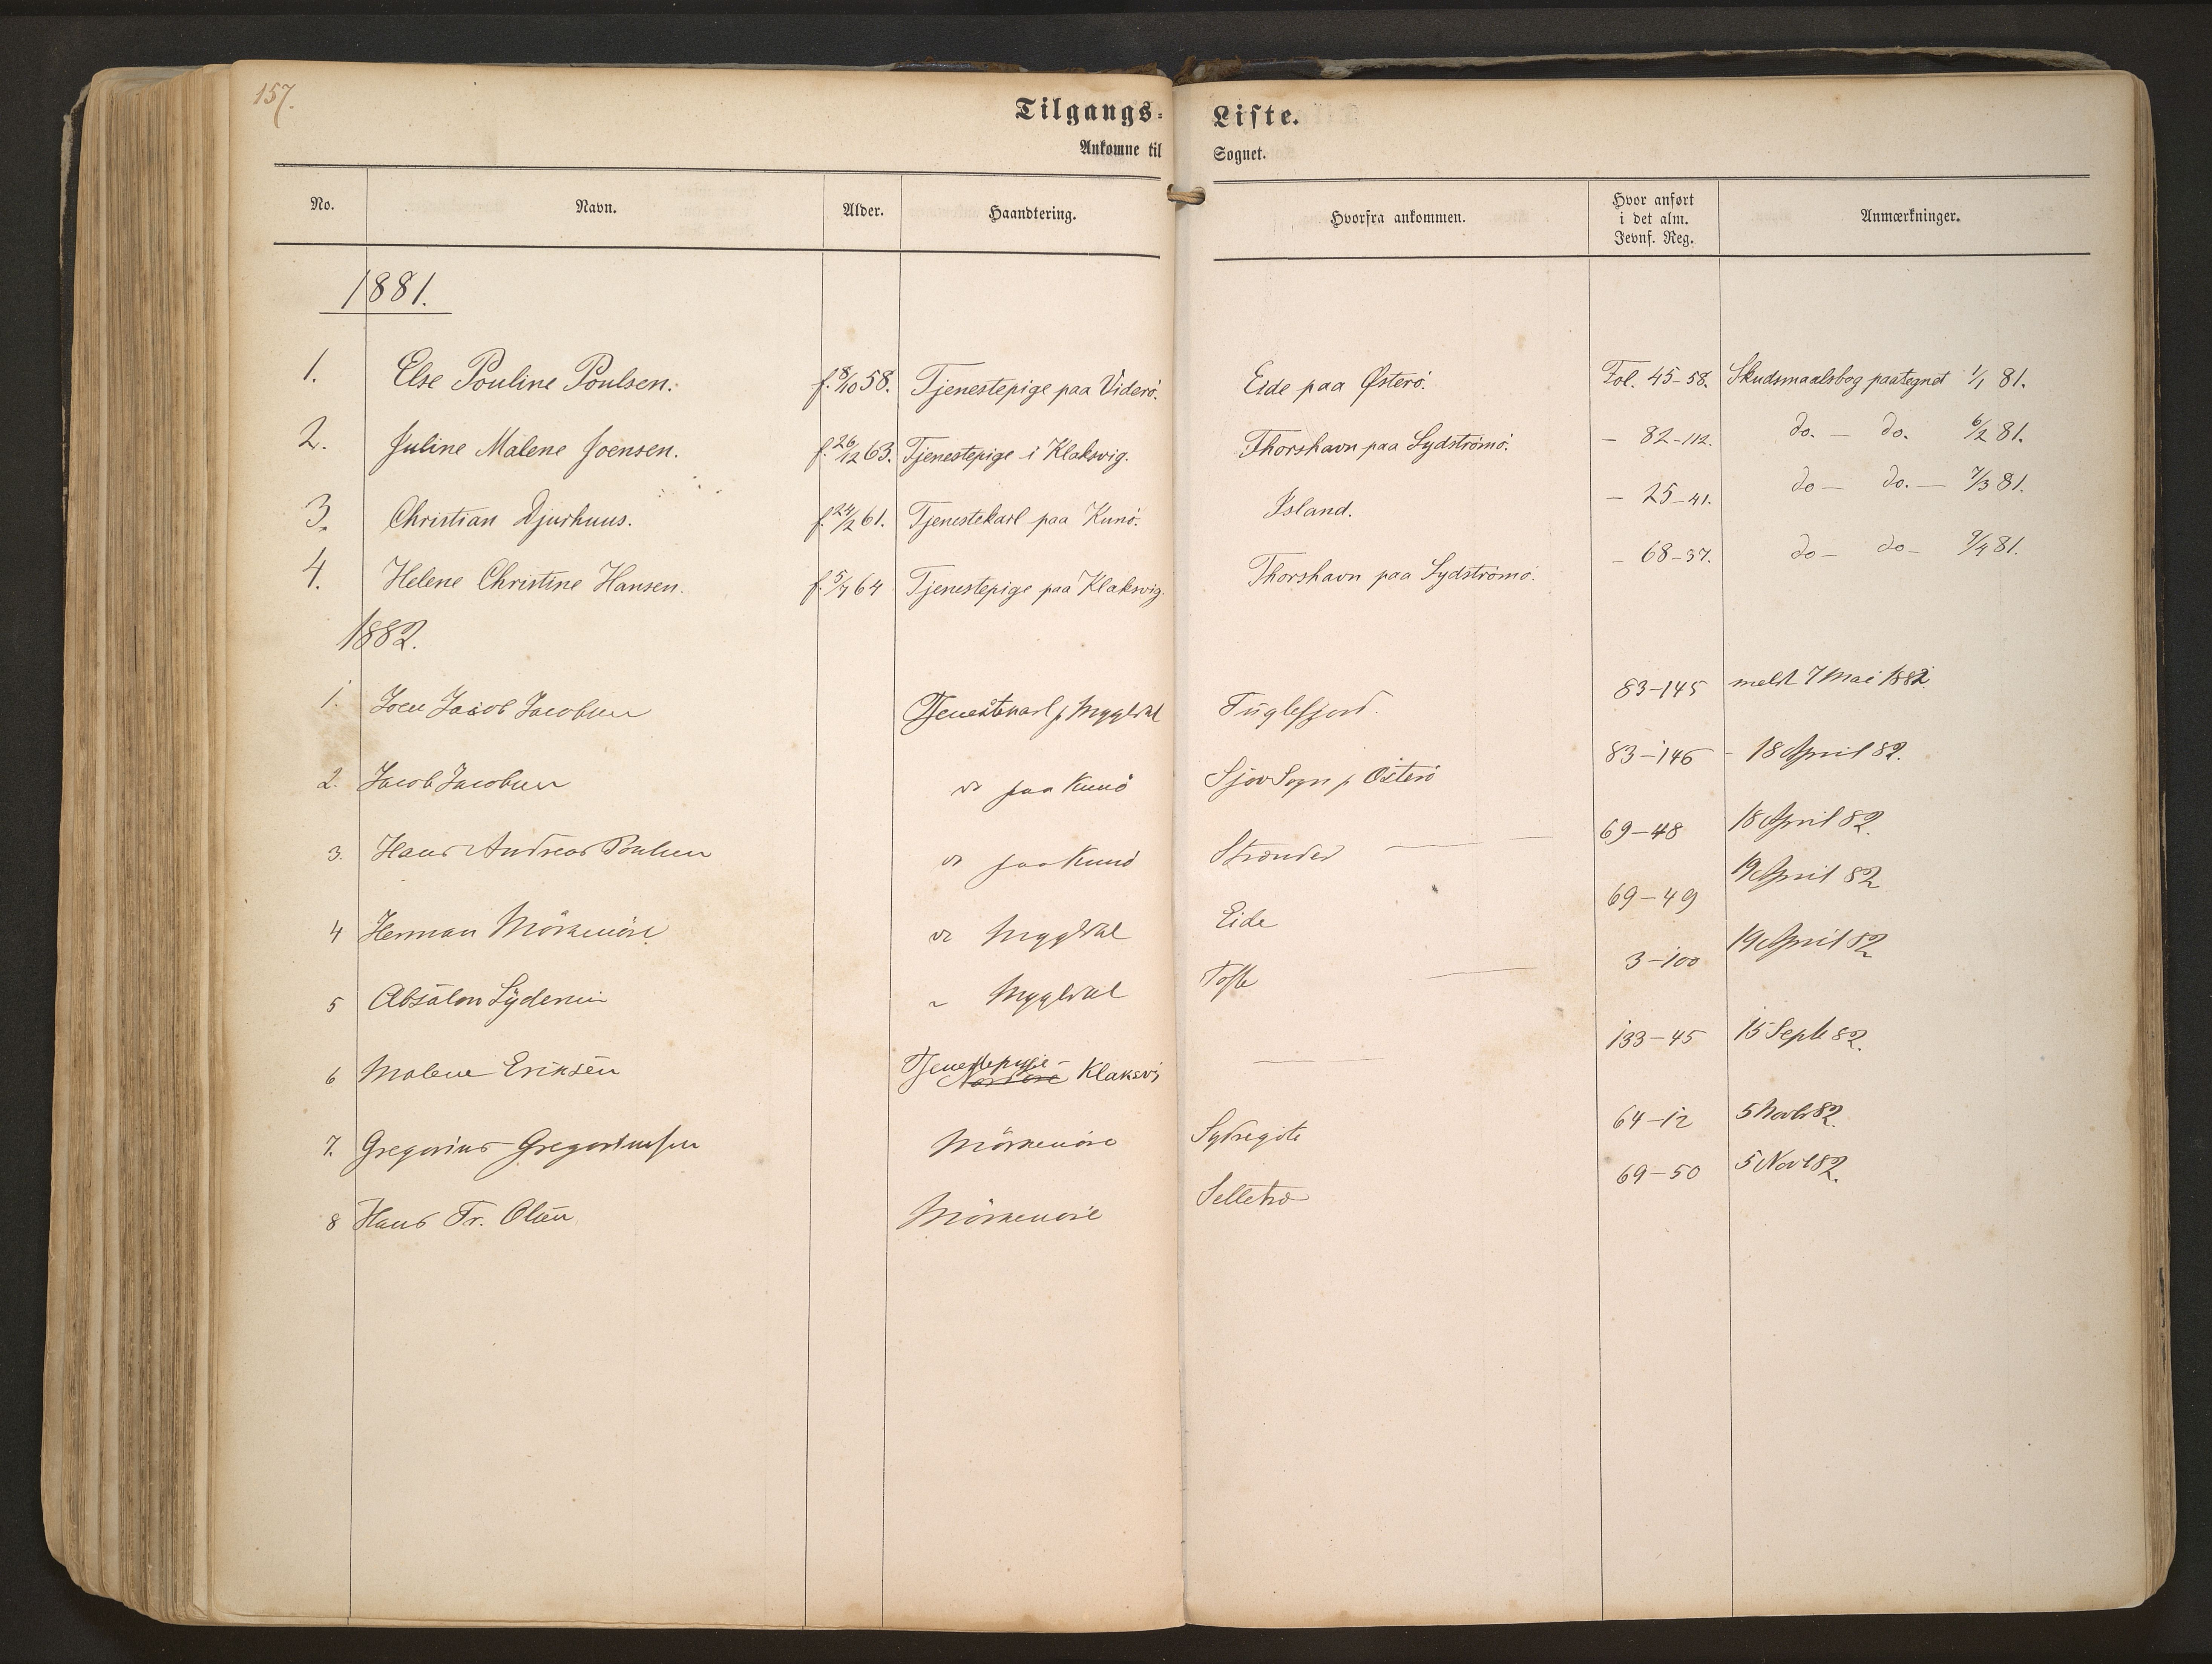 157.
Tilgangs= Liste.
Ankomne til Sognet.
No. Navn. Alder. Haandtering. Hvorfra ankommen. Hvor anført i det alm. Jevnf. Reg. Anmærkninger.
1881.
1. Else Pouline Poulsen. f. 8/10 58. Tjenestepige paa Viderö. Eide paa Østerö. Fol. 45-58. Skudsmaalsbog paategnet 1/1 81.
2. Juline Malene Joensen. f. 26/12 63. Tjenestepige i Klaksvig. Thorshavn paa Sydströmö. — 82-112. do. — do. 6/2 81.
3. Christian Djurhuus. f. 24/2 61. Tjenestekarl paa Kunö. Island. — 25-41. do — do. — 7/3 81.
4. Helene Christine Hansen. f. 5/7 64 Tjenestepige paa Klaksvig. Thorshavn paa Sydströmö. — 68-37. do — do — 9/4 81.
1882.
1. Joen Jacob Jacobsen Tjenestekarl p Mygledal Fuglefjord. 83-145 meldt 7 Mai 1882.
2. Jacob Jacobsen do paa Kunö Sjov Sogn p Österö 83-146 - 18 April 82.
3. Hans Andreas Poulsen do paa Kunö Strender — 69-48 18 April 82.
4 Herman Mörkenöre do Mygledal Eide 69-49 19 April 82
5 Absalon Lydersen " Mygledal Tofte — 3-100 19 April 82
6 Malene Eriksen Tjenestepige Klaksvi — — 133-45 15 Septb 82.
7. Gregorius Gregoriussen Mörkenöre Sydregöte 64-12 5 Novb 82.
8 Hans Fr. Olsen Mörkenöre Selletræ 69-50 5 Novb 82.